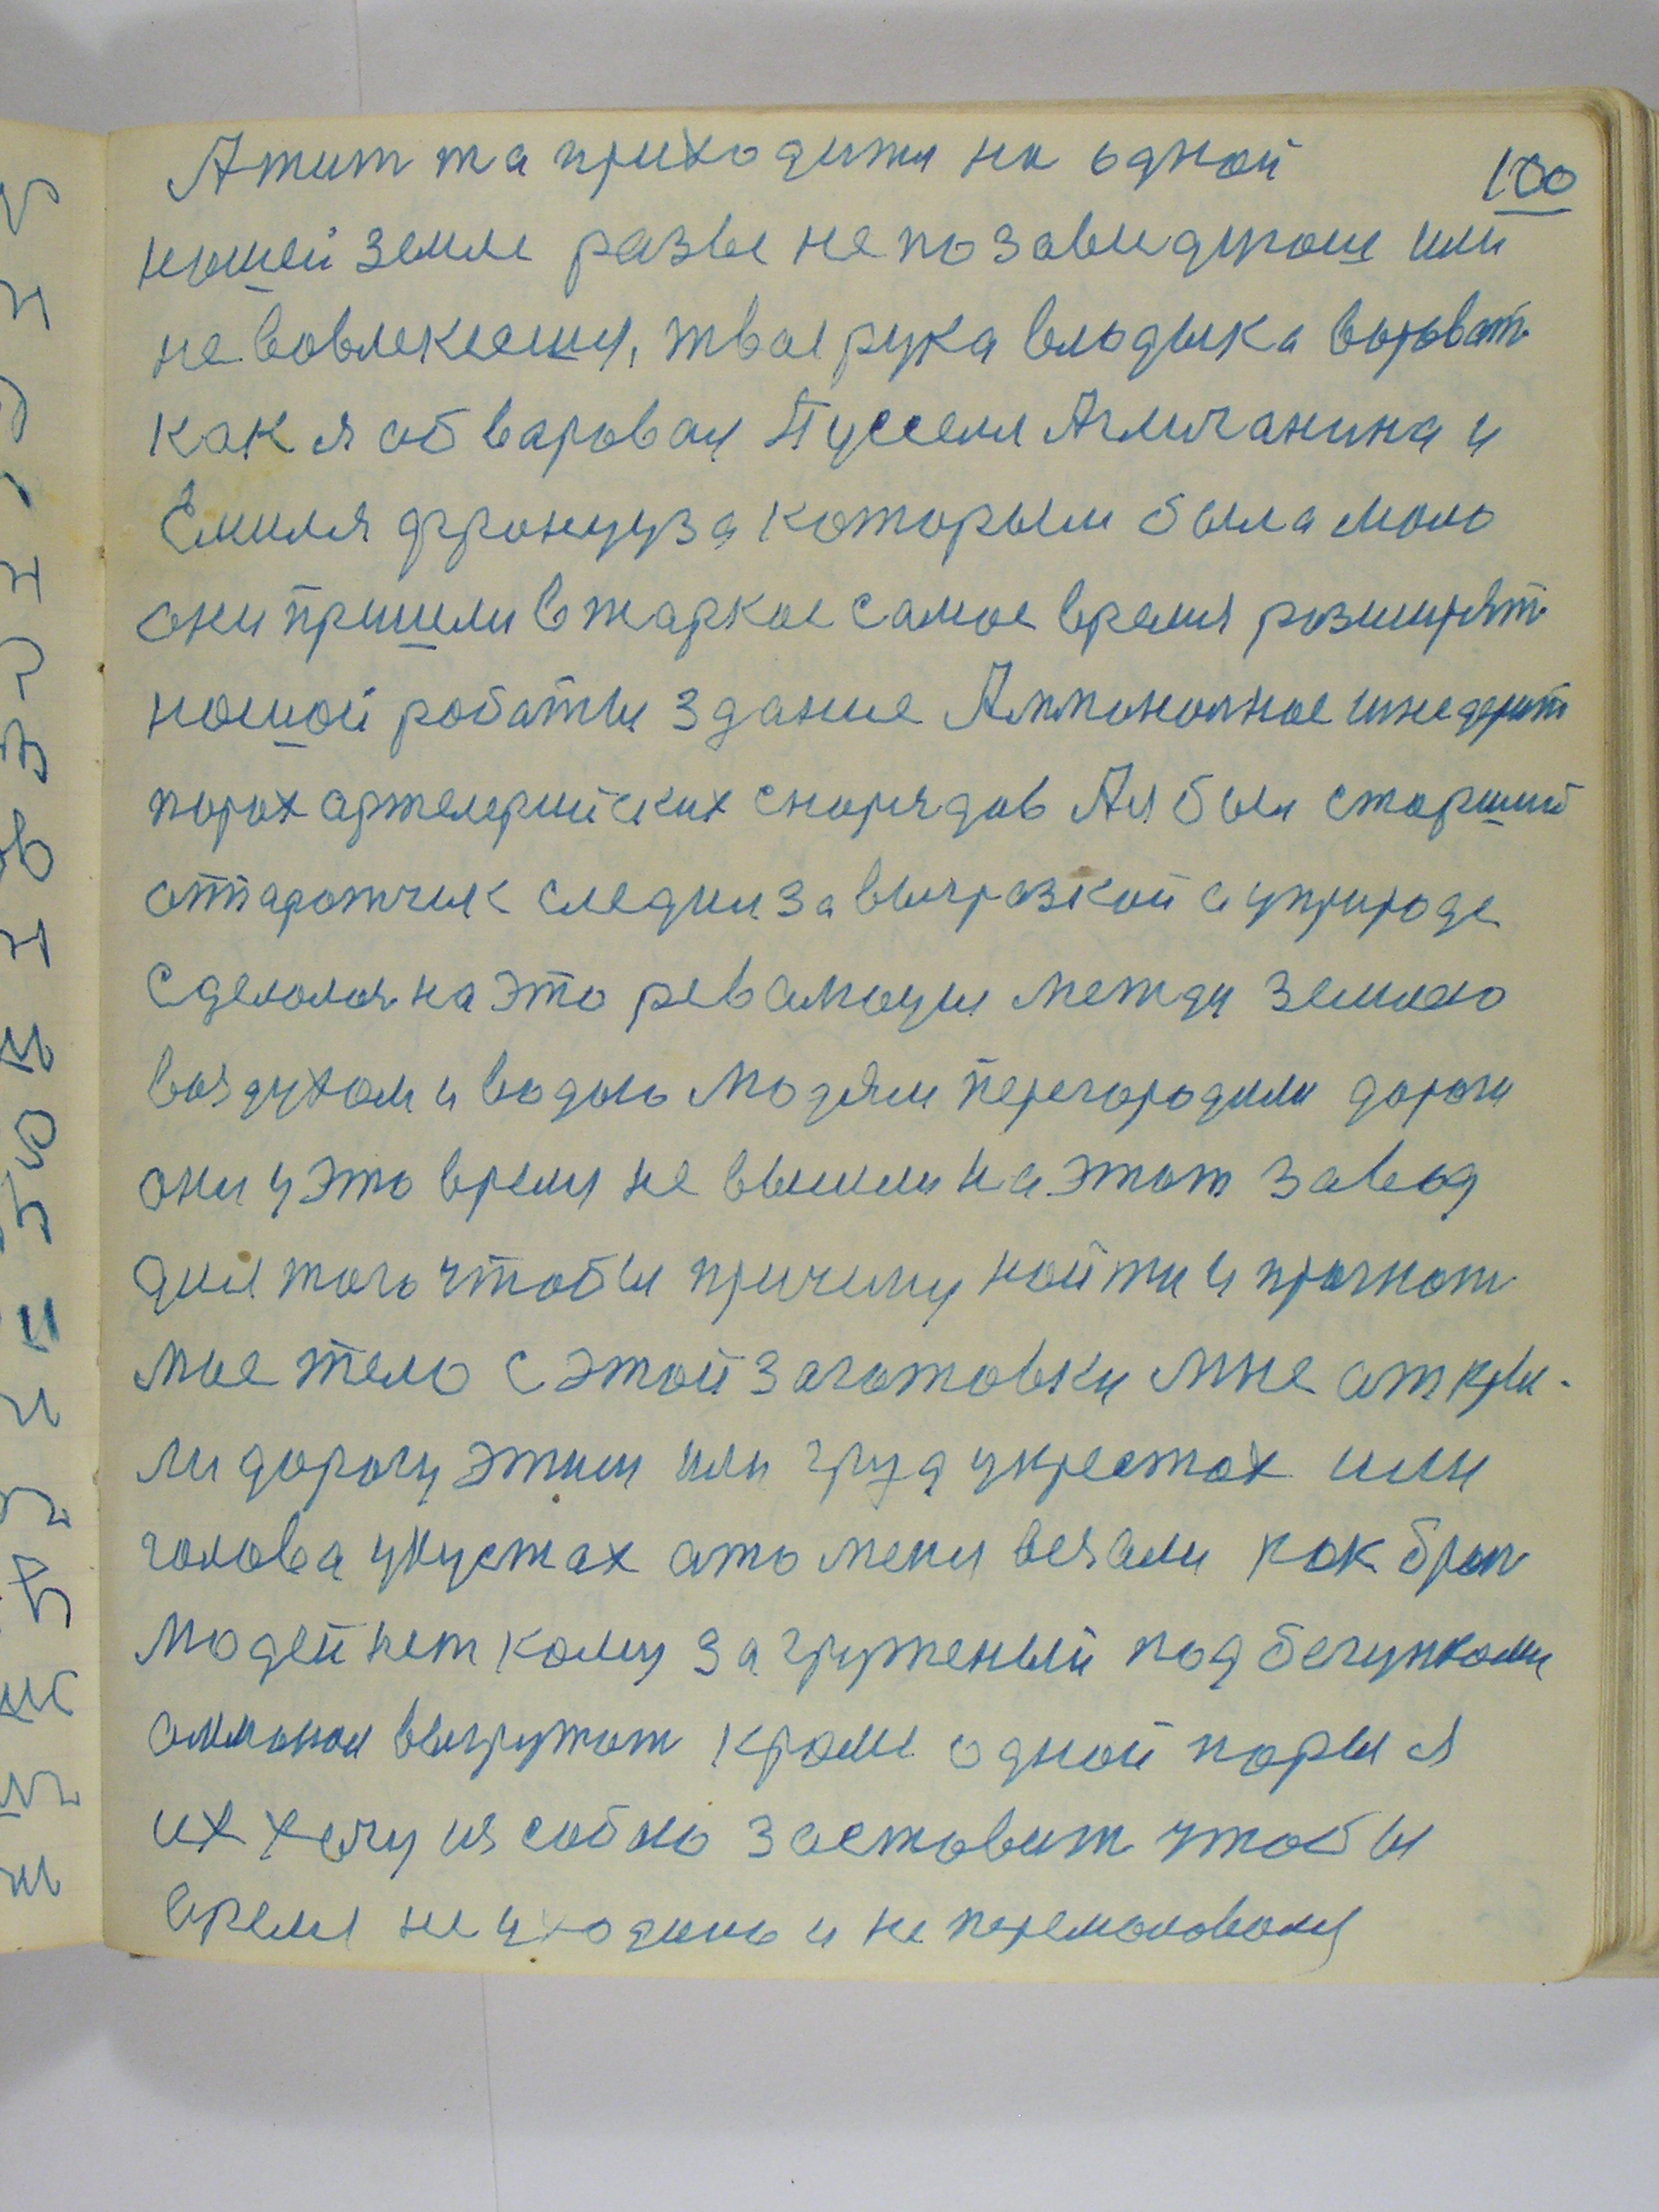 100
А тит та приходитя на одной
нашей земле развы не позавидуюш или
не вовлекеешя, твое рука владыка вырват
как я обваровал Пусселя Агличанина и
Емиля французза которым была мною
они пришли в жаркое самое время розширят
нашой работы здание Аммональное
порох артелерийских снарядав А я был старший
следил за выгразкой а у природе
сделалоя на это револющи между землею
воздухом и водою людям перегородили дароги
они у это время не вышли на этот завод
для того чтобы причину найти и прагнат
мое тело с этой заготовки мне аткры-
ли дорогу этим или груд укрестах или
голова укустах а то меня везали как
людей нет кому загруженый под бегунками
аммонал выгружат кроме одной пары я
их хочу из собою заставит чтобы
время не уходило и не перемаловаля